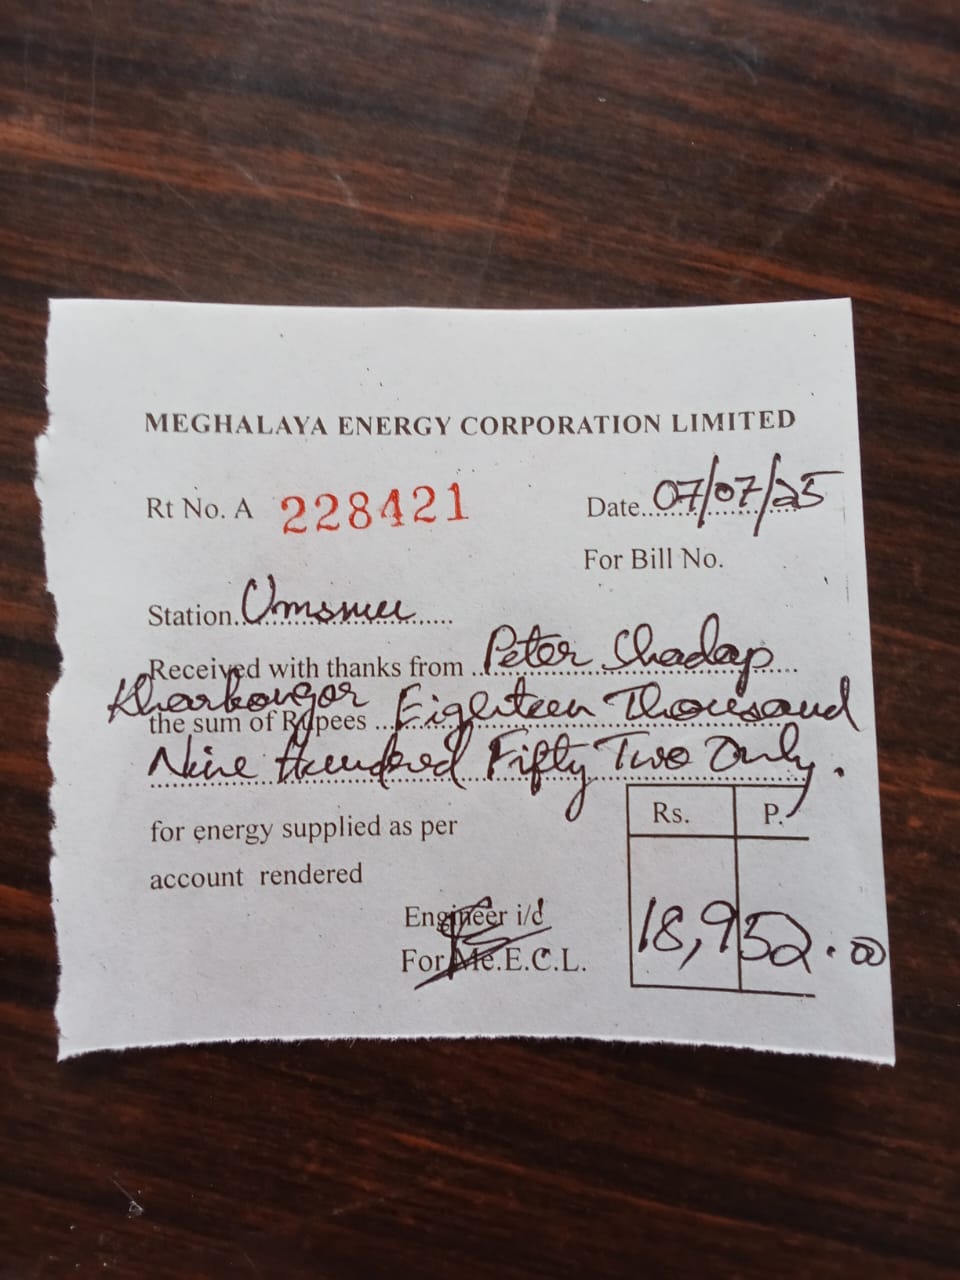 MEGHALAYA ENERGY CORPORATION LIMITED
Rt No. A 228421 Date 07/07/25
For Bill No.
Station Umsmu
Received with thanks from Peter Shadap
Kharbangar
the sum of Rupees Eighteen Thousand
Nine Hundred Fifty Two Only.
for energy supplied as per
account rendered
Rs. P.
18,952.00
Engineer i/d
For Me.E.C.L.